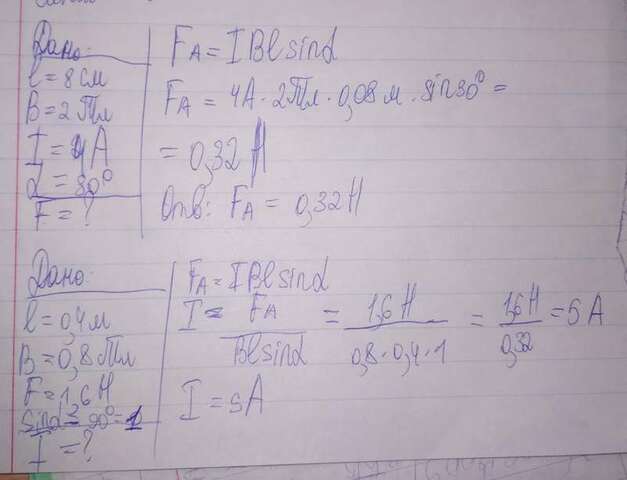 Дано:
l = 8 см
B = 2 Тл
I = 4 А
α = 30°
F = ?
F_A = IBl sinα
F_A = 4А · 2Тл · 0,08 м · sin30° =
= 0,32 Н
Отв: F_A = 0,32 Н
Дано:
l = 0,4 м
B = 0,8 Тл
F = 1,6 Н
sinα = 90° = 1
I = ?
F_A = IBl sinα
I = F_A / Bl sinα = 1,6 Н / 0,8 · 0,4 · 1 = 1,6 Н / 0,32 = 5 А
I = 5А